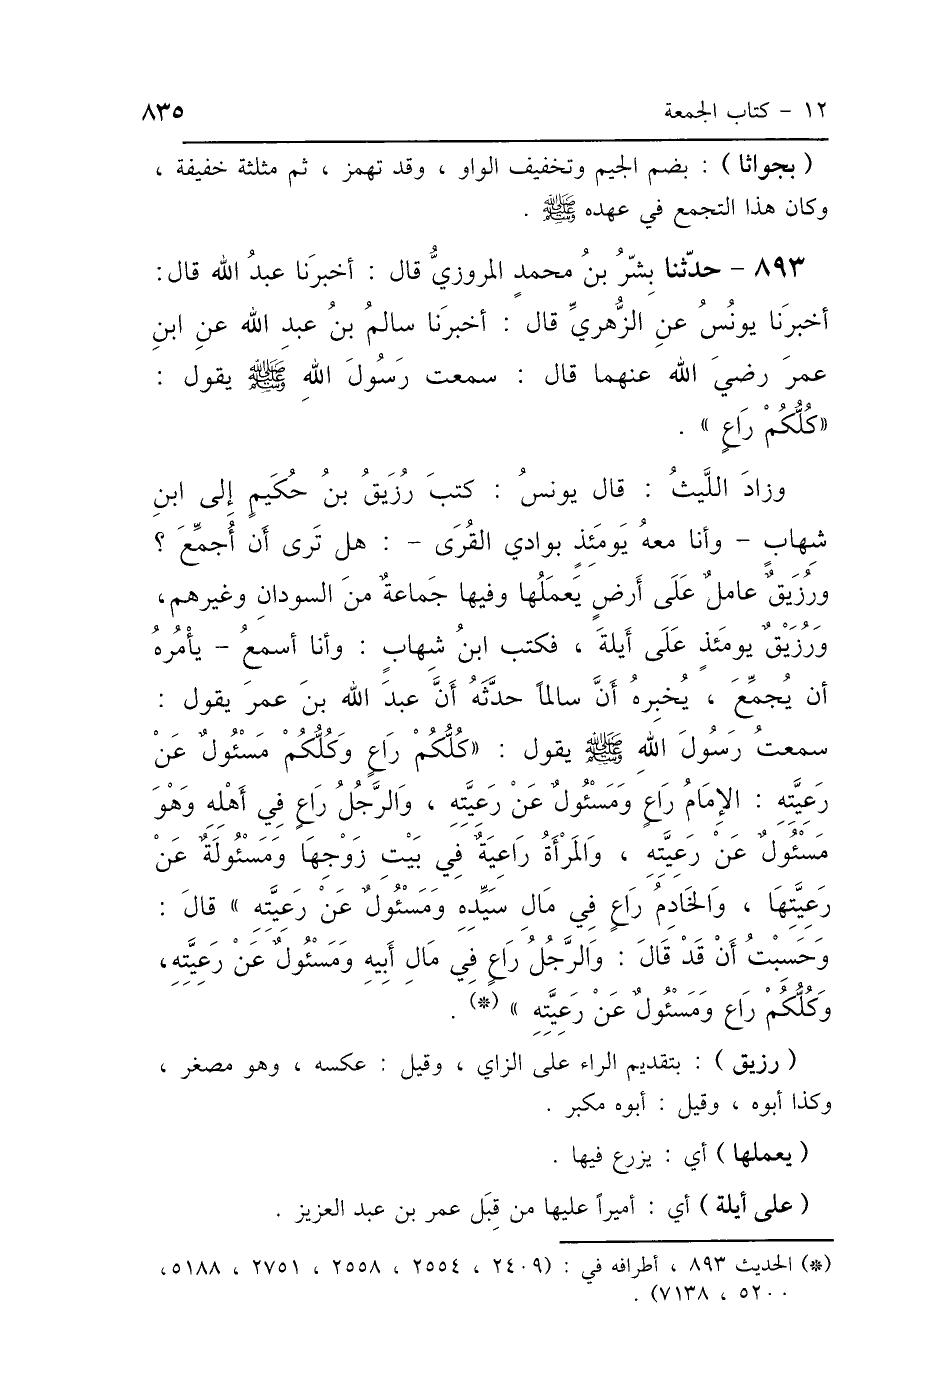 ١٢ - كتاب الجمعة ٨٣٥
( بجواثا ) : بضم الجيم وتخفيف الواو ، وقد تهمز ، ثم مثلثة خفيفة ،
وكان هذا التجمع في عهده ﷺ .
٨٩٣ - حدّثنا بِشْرُ بنُ محمدٍ المروزيُّ قال : أخبرَنا عبدُ الله قال :
أخبرَنا يونُسُ عنِ الزُّهريِّ قال : أخبرَنا سالمُ بنُ عبدِ الله عنِ ابنِ
عمرَ رضيَ الله عنهما قال : سمعت رَسُولَ اللهِ ﷺ يقول :
«كُلُّكُمْ رَاعٍ » .
وزادَ اللَّيثُ : قال يونسُ : كتبَ رُزَيقُ بنُ حُكَيمٍ إلى ابنِ
شهابٍ - وأنا معهُ يَومَئذٍ بوادي القُرَى - : هل تَرى أن أُجمِّعَ ؟
ورُزَيقٌ عاملٌ عَلَى أَرضٍ يَعمَلُها وفيها جَماعةٌ منَ السودانِ وغيرهم،
وَرُزَيْقٌ يومَئذٍ عَلَى أَيلةَ ، فكتب ابنُ شِهابٍ : وأنا أسمعُ - يأْمُرهُ
أن يُجمِّعَ ، يُخبِرهُ أَنَّ سالماً حدَّثَهُ أَنَّ عبدَ الله بنَ عمرَ يقول :
سمعتُ رَسُولَ اللهِ ﷺ يقول : «كُلُّكُمْ رَاعٍ وَكُلُّكُمْ مَسْئُولٌ عَنْ
رَعِيَّتِهِ : الإِمَامُ رَاعٍ وَمَسْئُولٌ عَنْ رَعِيَّتِهِ ، وَالرَّجُلُ رَاعٍ فِي أَهْلِهِ وَهْوَ
مَسْئُولٌ عَنْ رَعِيَّتِهِ ، وَالمَرْأَةُ رَاعِيَةٌ فِي بَيْتِ زَوْجِهَا وَمَسْئُولَةٌ عَنْ
رَعِيَّتِهَا ، وَالخَادِمُ رَاعٍ فِي مَالِ سَيِّدِهِ وَمَسْئُولٌ عَنْ رَعِيَّتِهِ » قالَ :
وَحَسِبْتُ أَنْ قَدْ قَالَ : وَالرَّجُلُ رَاعٍ فِي مَالِ أَبِيهِ وَمَسْئُولٌ عَنْ رَعِيَّتِهِ،
وَكُلُّكُمْ رَاعٍ وَمَسْئُولٌ عَنْ رَعِيَّتِهِ » (*) .
( رزيق ) : بتقديم الراء على الزاي ، وقيل : عكسه ، وهو مصغر ،
وكذا أبوه ، وقيل : أبوه مكبر .
( يعملها ) أي : يزرع فيها .
( على أيلة ) أي : أميراً عليها من قِبَل عمر بن عبد العزيز .
(*) الحديث ٨٩٣ ، أطرافه في : (٢٤٠٩ ، ٢٥٥٤ ، ٢٥٥٨ ، ٢٧٥١ ، ٥١٨٨،
٥٢٠٠ ، ٧١٣٨) .